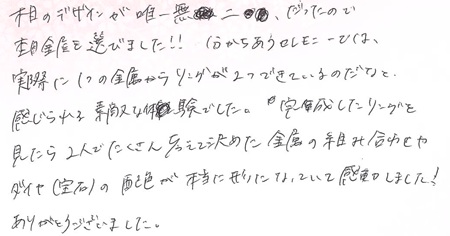 木目のデザインが唯一無二、だったので
杢目金屋を選びました!! 分かちあうセレモニーでは、
実際に1つの金属からリングが2つできているのだなと、
感じられる素敵な体験でした。完成したリングを
見たら2人でたくさん考えて決めた金属の組み合わせや
ダイヤ(宝石)の配色が本当に形になっていて感動しました!
ありがとうございました。